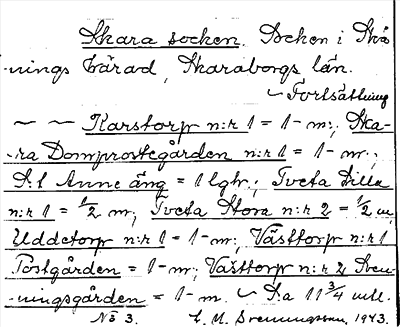 Skara socken. Socken i Skå-
-nings härad, Skaraborgs län.
~ Fortsättning
~ ~ Karstorp n:r 1 = 1-m:; Ska-
-ra Domprostegården n:r 1 = 1-m.;
S:t Anne äng = 1 lght; Tveta Lilla
n:r 1 = 1/2 m; Tveta Stora n:r 2 = 1/2 m
Uddetorp n:r 1 = 1-m; Västtorp n:r 1
Postgården = 1-m; Västtorp n:r 2 Sven-
-ningsgården = 1-m. ~ S:a 11 3/4 mtl.
No 3. E. M. Svenningsson, 1943.